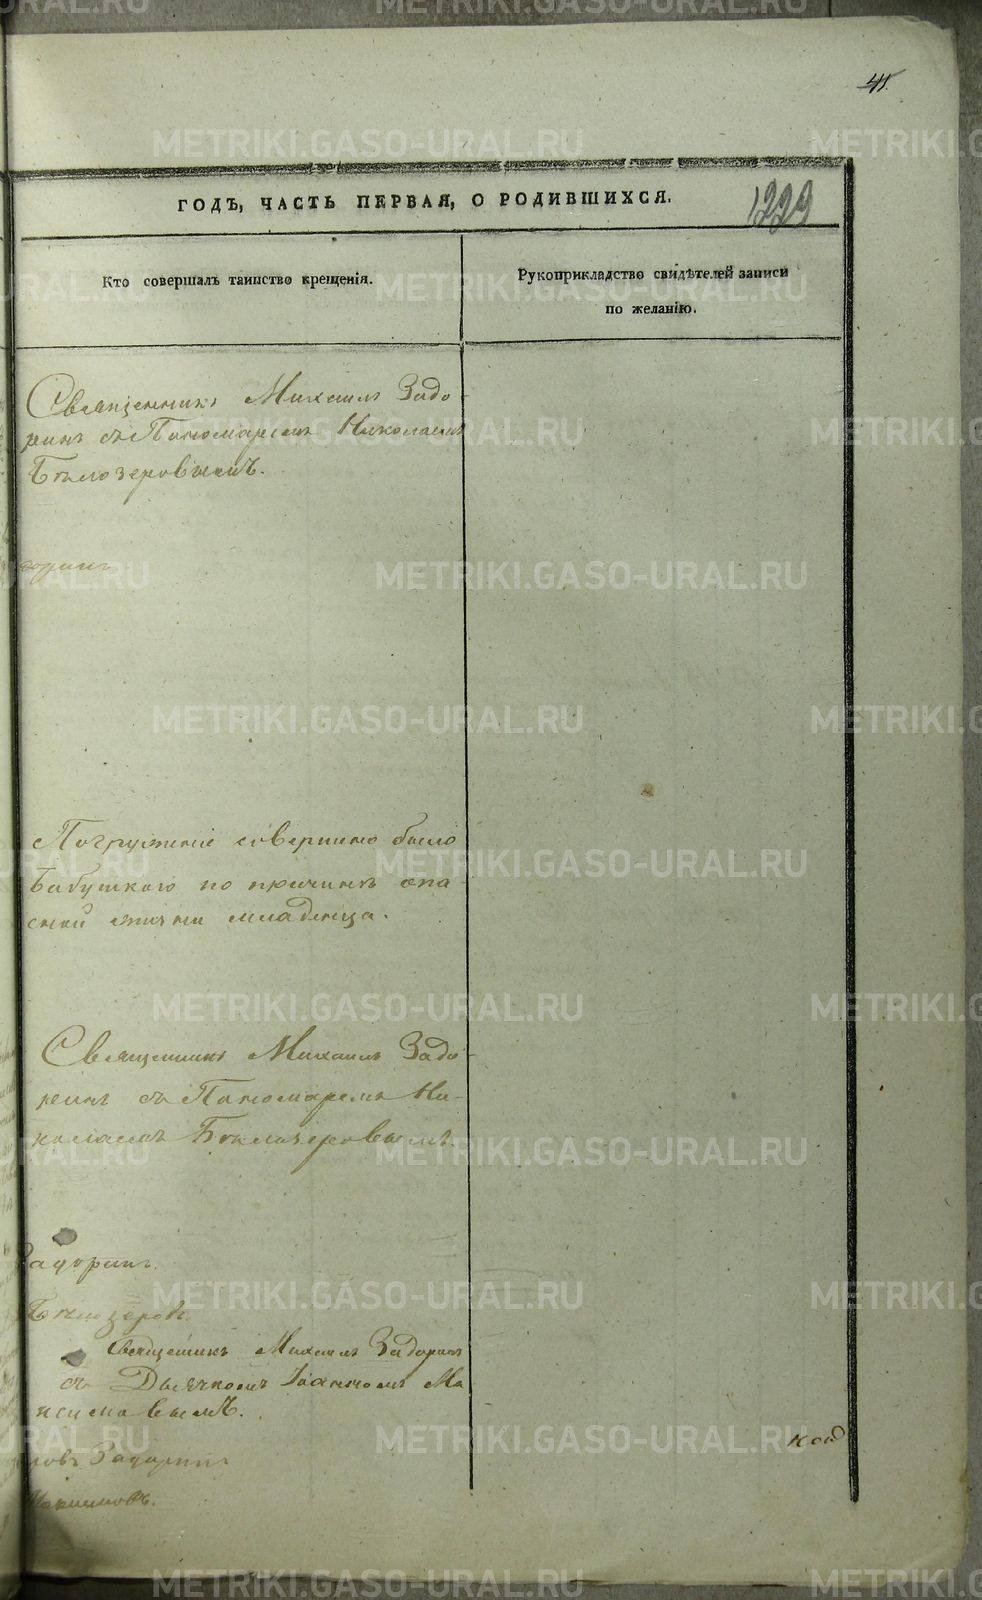 41.
ГОДЪ, ЧАСТЬ ПЕРВАЯ, О РОДИВШИХСЯ.
1229
Кто совершалъ таинство крещенія.
Рукоприкладство свидѣтелей записи
по желанію.
Священникъ Михаилъ Задо-
ринъ съ Пономаремъ Николаемъ
Бѣлозеровымъ.
доринъ
Погруженіе совершено было
бабушкою по причинѣ опа-
сной жизни младенца.
Священникъ Михаилъ Задо-
ринъ съ Пономаремъ Ни-
колаемъ Бѣлозеровымъ.
Задоринъ.
Бѣлозеровъ.
Священникъ Михаилъ Задоринъ
съ Дьячкомъ Іоанномъ Ма
ксимовымъ.
Задоринъ
Максимовъ.
METRIKI.GASO-URAL.RU